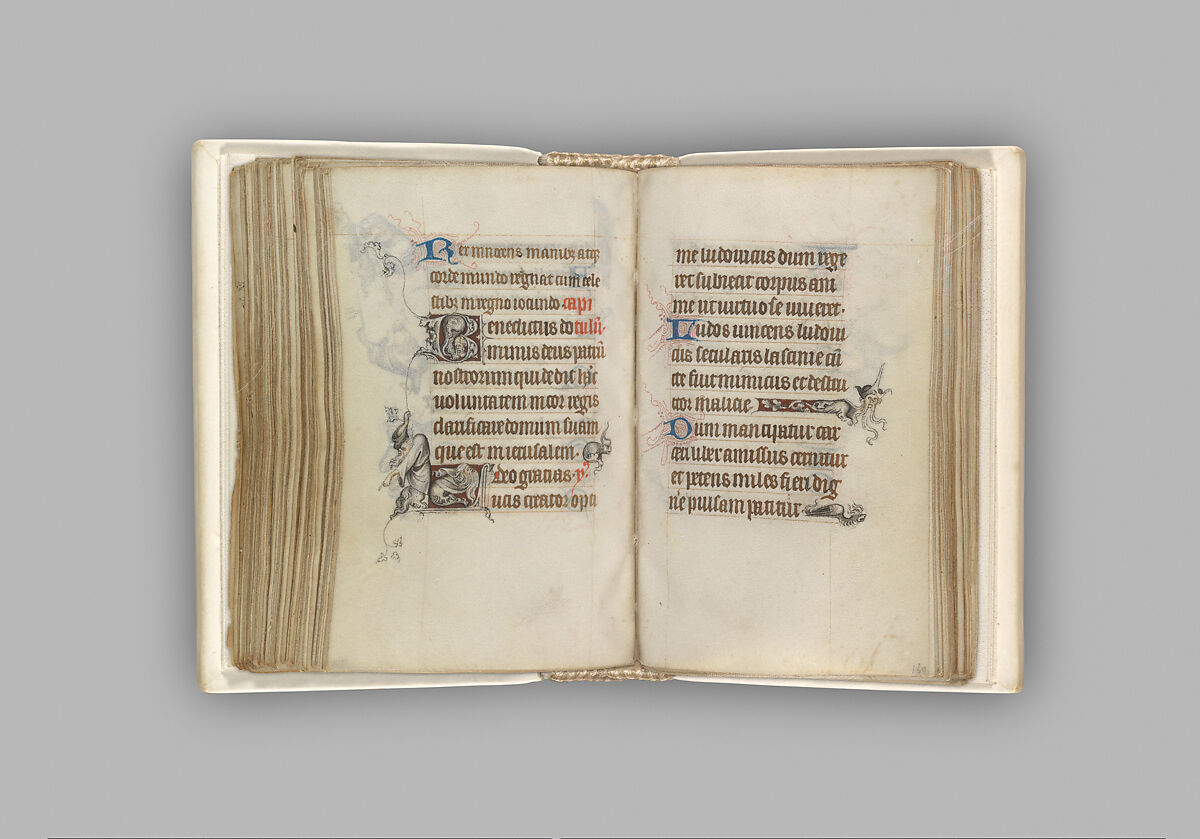 Rex innocens manibꝫ atqꝫ
corde mundo regnat cum cele
stibꝫ in regno iocundo. capi
Benedictus do tulū.
minus deus patrū
nostrorum qui dedit hāc
uoluntatem in cor regis
clarificare domum suam
que est in ierusalem.
deo gracias.
Lucis creator opti
me ludouicus dum rege
ret subiecit corpus ani
me ut uirtuose uiueret.
Ludos uincens ludoui
cus secularis lasciuie cū
fuit inimicus et destru
ctor malicie.
Dum mancipatur car
ceri liber amissus cernitur
et petens miles fieri dig
patitur